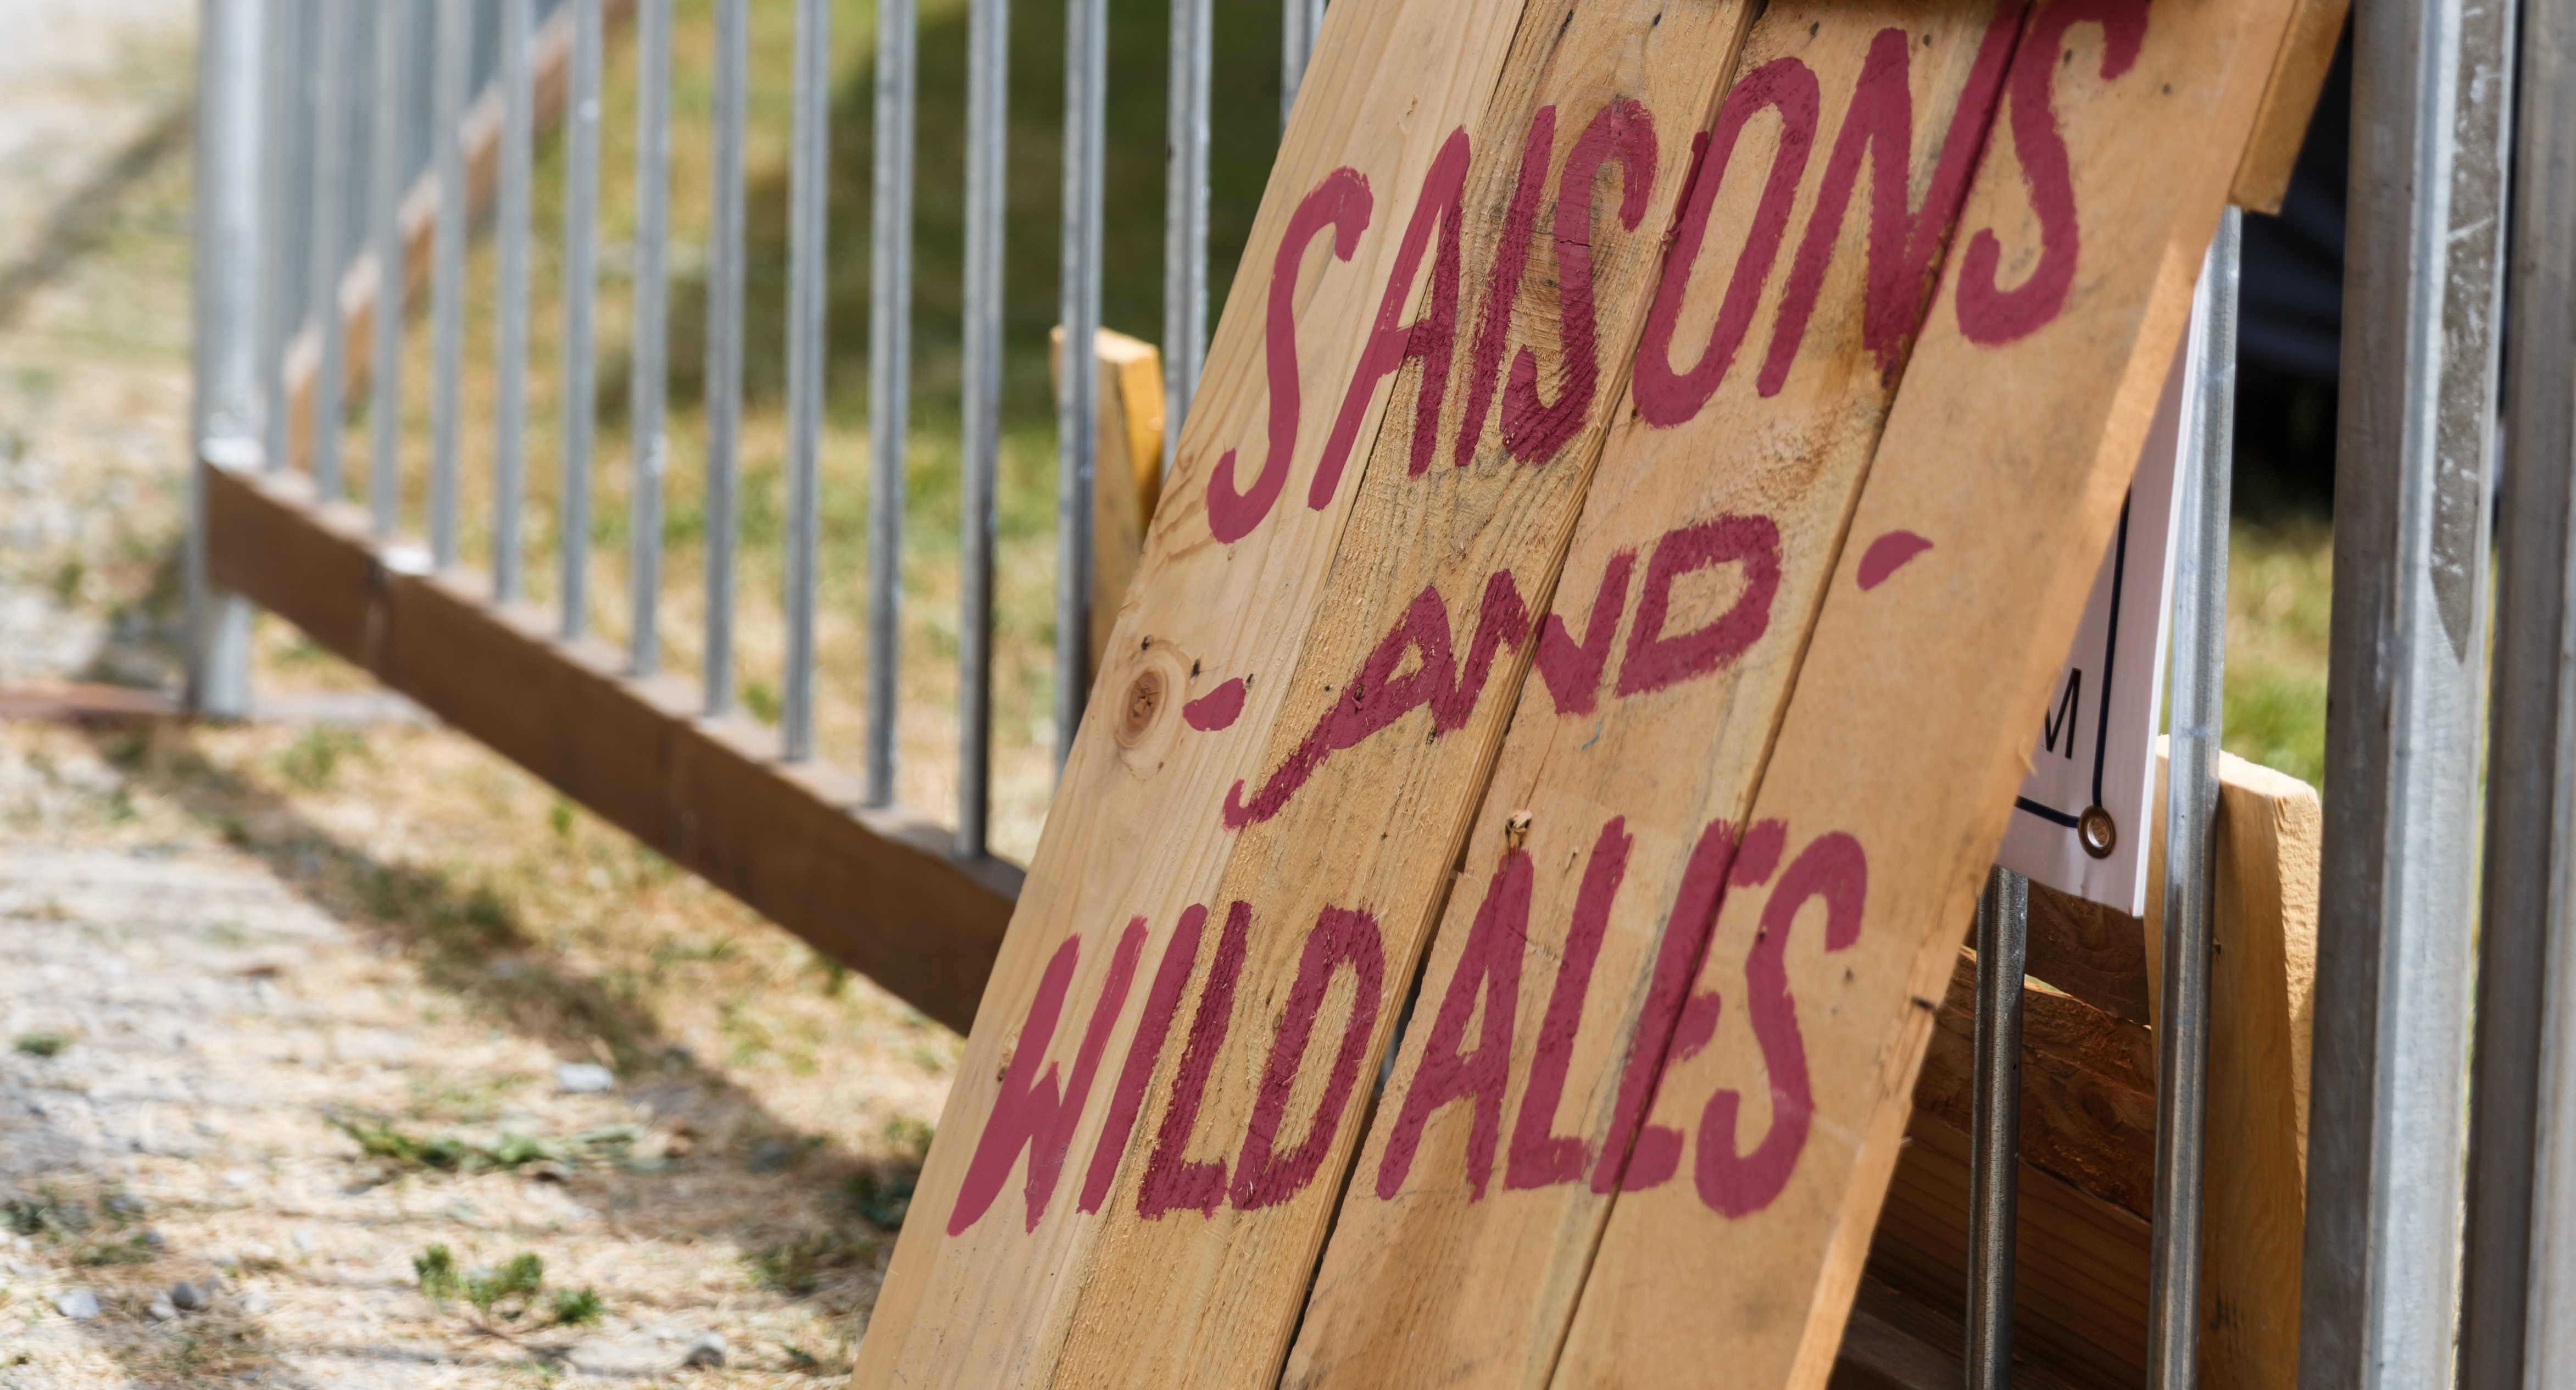 SAISONS
- AND -
WILD ALES
M